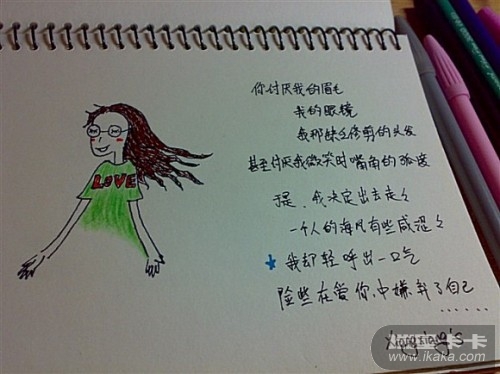 你讨厌我的眉毛
我的眼镜
我那缺乏修剪的头发
甚至讨厌我微笑时嘴角的弧度
于是、我决定出去走走
一个人的海风有些咸涩
我却轻呼出一口气
险些在爱你中嫌弃了自己
......
LOVE
卡卡
www.ikaka.com